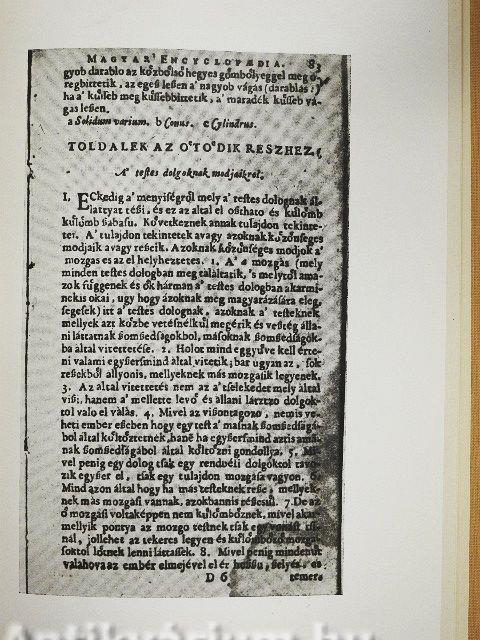 MAGYAR' ENCYCLOPÆDIA. 83
gyob darablo az kôzbôlsô hegyes gômbôlyeggel meg
regbittetik, az egeß leßen a' nagyob vágas (darablás:)
ha a' kûlseb meg kûssebbittetik, a' maradék kûsseb vá-
gas leßen.
a Solidum varium. b Conus. c Cylindrus.
TOLDALEK AZ OTODIK RESZHEZ,
A' testes dolgoknak modjaikról.
I. ECkedig a' menyiségrôl mely a' testes dolognak ál-
lattyat téßi, és ez az altal el oßtható és kûlômb
kûlômb ßabasu. Kôvetkeznek annak tulajdon tekinte-
tei. A' tulajdon tekintetek avagy azoknak kôzônséges
modjaik avagy reßeik. Azoknak kôzônséges modjok a'
mozgas es az el helyheztetes. 1. A' a mozgás (mely
minden testes dologban meg találtatik, 's melytôl ama-
zok fûggenek és ôk hárman a' testes dologban akarmi-
nekis okai, ugy hogy azoknak meg magyarázására eleg-
segesek) itt a' testes dolognak, azoknak a' testeknek
mellyek azt kôzbe vetésnélkûl megérik és vesteg álla-
ni láttatnak ßomßedságokbol, másoknak ßomßedságok-
ba által vitettetése. 2. Holot mind eggyûve kell érte-
ni valami egyßersmind által vitetik; bar ugyan az, sok
reßekbôl allyonis, mellyeknek más mozgasik legyenek.
3. Az altal vitettetés nem az a' tselekedet mely által
vißi, hanem a' mellette levô és állani látzzo dolgok-
tol valo el válás. 4. Mivel az vißontagozo, nemis ve-
heti ember eßében hogy egy test a' másnak ßomßedságá-
ból által kôltôztetnék, hanē ha egyßersmind aztis ama-
nak ßomßedságából által kôltôzni gondollya. 5. Mi-
vel penig egy dolog tsak egy rendbéli dolgoktol távo-
zik egyßer el, tsak egy tulajdon mozgása vagyon. 6.
Mind azon által hogy ha más testeknek reße, mellyek-
nek más mozgási vannak, azokbannis reßesûl. 7. De az
ô mozgási voltaképpen nem kûlômbôznek, mivel akar-
mellyik pontya az mozgo testnek tsak egy vonást tsi-
nál, jollehet az tekeres legyen és kûlômbôzô mozgá-
soktol lôtnek lenni láttassék. 8. Mivel penig mindenût
valahova az ember elmejével el ér hoßßu, ßelyes, és
D 6 temere
Antikvárium.hu